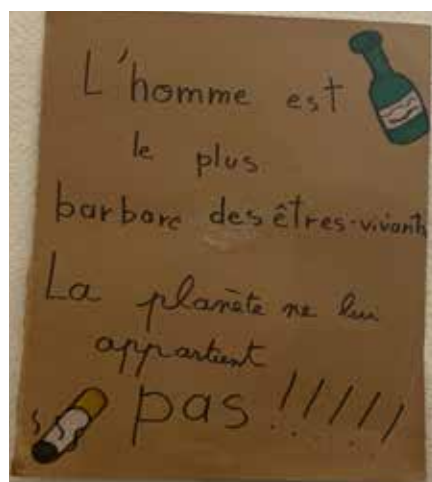 L'homme est
le plus
barbare des êtres-vivants
La planète ne lui
appartient
pas !!!!!